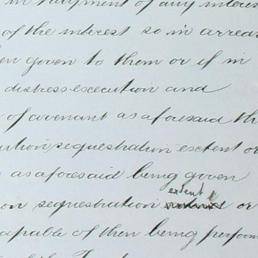 in payment of any interest
of the interest so in arrear
en given to them or if in
distress execution and
of covenant as aforesaid th
ution sequestration extent or
as aforesaid being given
extent
on sequestration or
capable of then being perform